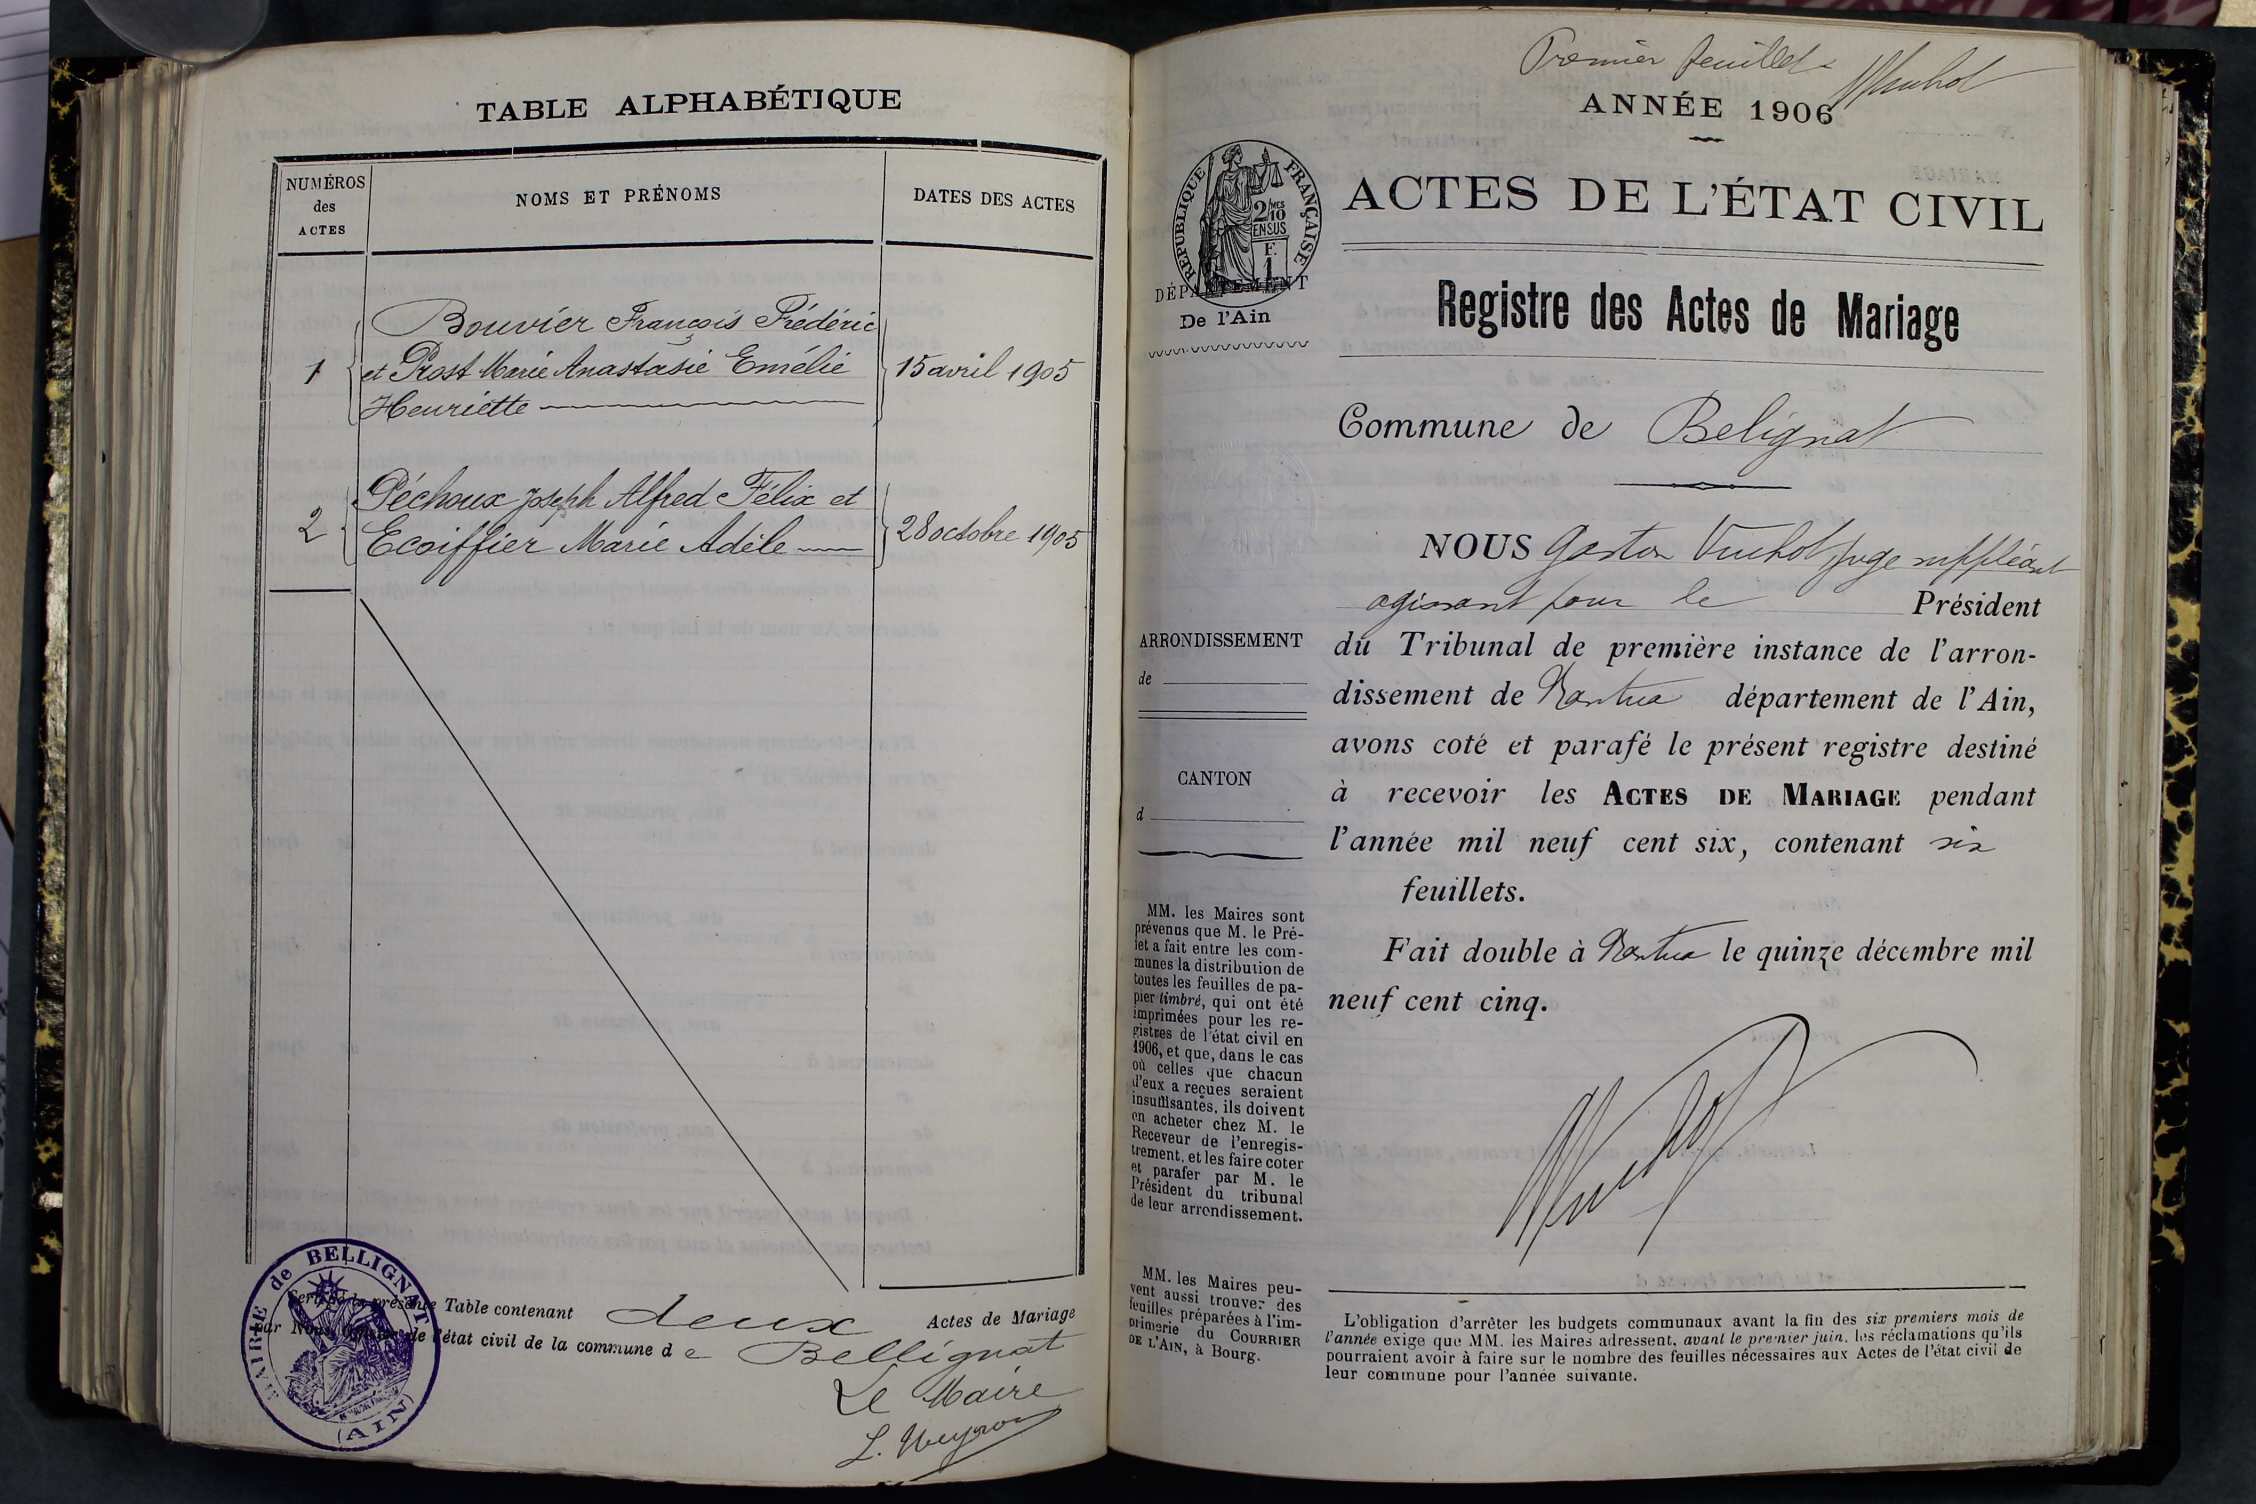 TABLE ALPHABÉTIQUE
NUMÉROS
des
ACTES
NOMS ET PRÉNOMS
DATES DES ACTES
1
Bouvier François Frédéric
et Prost Marie Anastasie Emélie
Henriette
15 avril 1905
2
Péchoux Joseph Alfred Félix et
Ecoiffier Marie Adèle
28 octobre 1905
Certifié la présente Table contenant deux Actes de Mariage
par Nous, Officier de l'état civil de la commune de Bellignat
Le Maire
MAIRIE de BELLIGNAT
(AIN)
Premier feuillet
ANNÉE 1906
RÉPUBLIQUE FRANÇAISE
2/10
MES
EN SUS
F.
1
DÉPARTEMENT
De l'Ain
ACTES DE L'ÉTAT CIVIL
Registre des Actes de Mariage
Commune de Belignat
NOUS Gaston Vuchot juge suppléant
agissant pour le Président
du Tribunal de première instance de l'arron-
dissement de Nantua département de l'Ain,
avons coté et parafé le présent registre destiné
à recevoir les ACTES DE MARIAGE pendant
l'année mil neuf cent six, contenant six
feuillets.
Fait double à Nantua le quinze décembre mil
neuf cent cinq.
ARRONDISSEMENT
de
CANTON
d
MM. les Maires sont
prévenus que M. le Pré-
fet a fait entre les com-
munes la distribution de
toutes les feuilles de pa-
pier timbré, qui ont été
imprimées pour les re-
gistres de l'état civil en
1906, et que, dans le cas
où celles que chacun
d'eux a reçues seraient
insuffisantes, ils doivent
en acheter chez M. le
Receveur de l'enregis-
trement, et les faire coter
et parafer par M. le
Président du tribunal
de leur arrondissement.
MM. les Maires peu-
vent aussi trouver des
feuilles préparées à l'im-
primerie du COURRIER
DE L'AIN, à Bourg.
L'obligation d'arrêter les budgets communaux avant la fin des six premiers mois de
l'année exige que MM. les Maires adressent, avant le premier juin, les réclamations qu'ils
pourraient avoir à faire sur le nombre des feuilles nécessaires aux Actes de l'état civil de
leur commune pour l'année suivante.